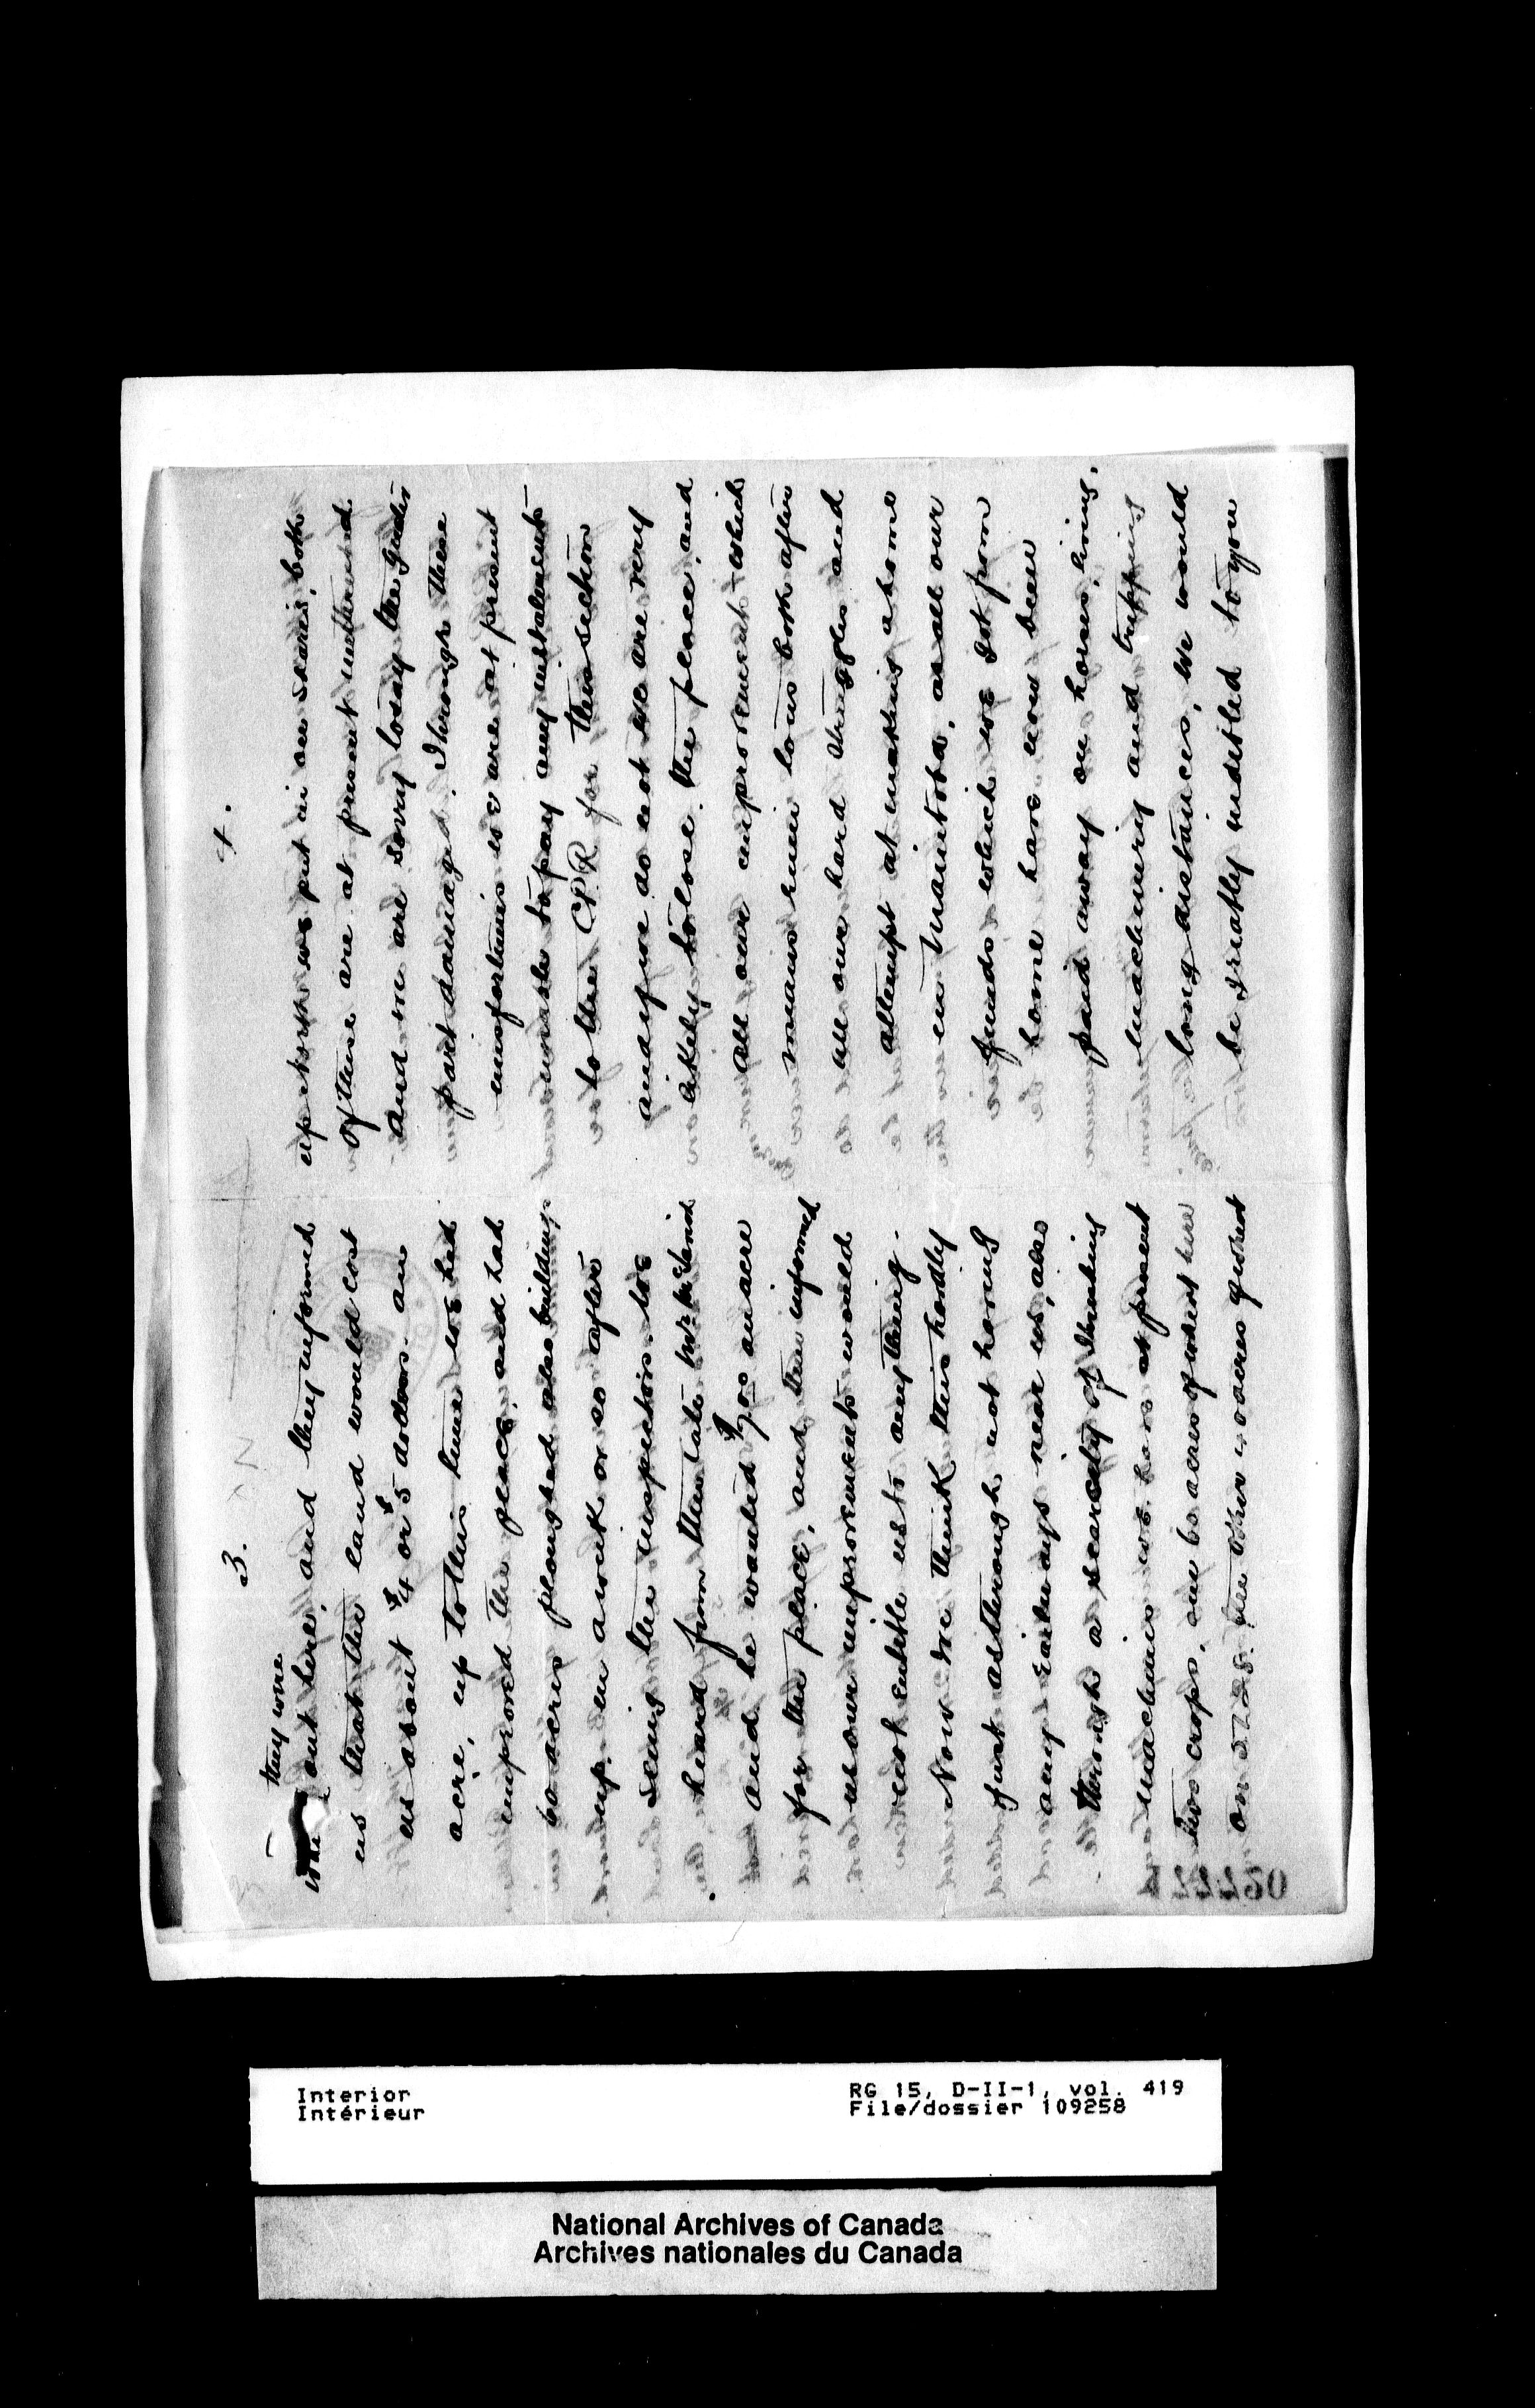 3.
they were
out here, and they informed
us that the land would cost
us about $4 or $5 dollars an
acre, up to this time we had
improved the place and had
60 acres ploughed also buildings
up. in a week or so after
seeing the inspectors we
heard from the late Mr
and he wanted $7.00 an acre
for the place, and then informed
us our improvements would
not entitle us to anything.
Now we think this hardly
just although not having
any railways near us, also
through a scarcity of thrashing
machines we have at present
two crops, our 60 acres of wheat here
on S.
4.
up north we put in on shares, both
of these are at present unthrashed
and we are sorry to say the greater
part damaged. Through these
misfortunes we are at present
unable to pay any instalments
to the C.P.R for this section
and if we do not we are very
likely to lose the place, and
all our improvement which
means ruin to us both after
all our hard struggles and
attempt at making a home
in Manitoba, as all our
funds which we got from
home have now been
paid away on horses, living,
machinery and tripping
long distances, we would
be greatly indebted to you
Interior
Intérieur
RG 15, D-II-1, vol. 419
File/dossier 109258
National Archives of Canada
Archives nationales du Canada